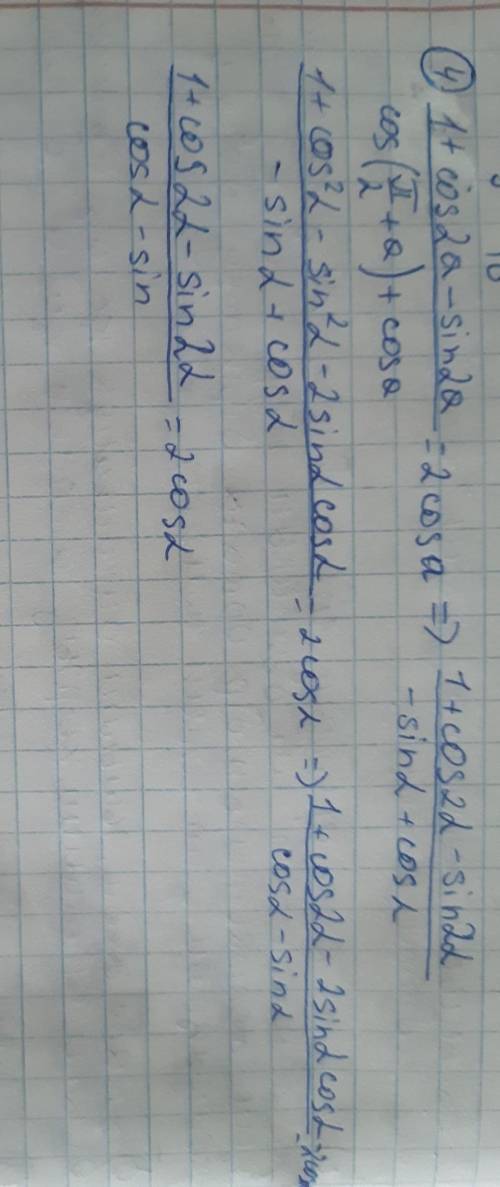 ④ (1 + cos2a - sin2a) / (cos(π/2 + a) + cosa) = 2cosa => (1 + cos2α - sin2α) / (- sinα + cosα)
(1 + cos²α - sin²α - 2sinα cosα) / (- sinα + cosα) = 2cosα => (1 + cos2α - 2sinα cosα) / (cosα - sinα)
(1 + cos2α - sin2α) / (cosα - sin) = 2cosα